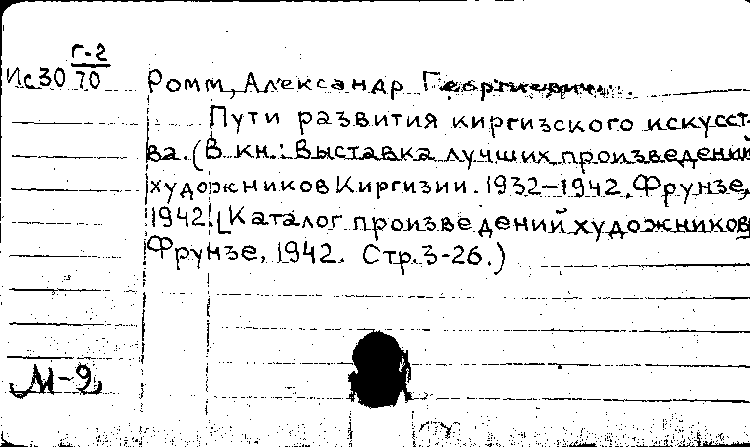 Г-2
Ис30 70 Ромм, Александр Георгиевич.
Пути развития киргизского искусст-
ва. (В кн.: Выставка лучших произведений
художников Киргизии. 1932-1942. Фрунзе,
1942. [Каталог произведений художников]
Фрунзе, 1942. Стр. 3-26.)
М-9